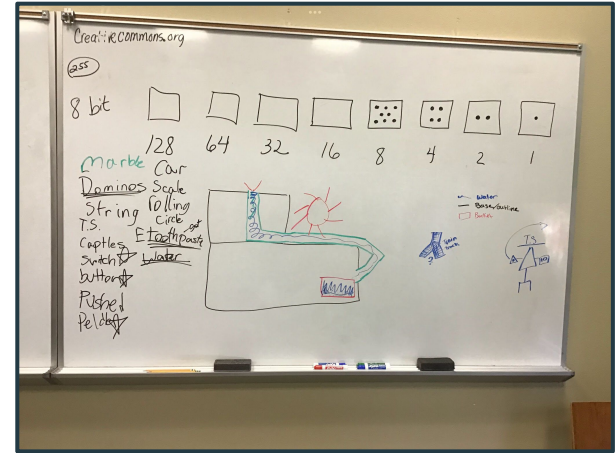 Creative commons.org
255
8 bit
128 64 32 16 8 4 2 1
Marble
Dominos
String
T.S.
switch
button
Car
Scale
rolling
circle
toothpaste
water
water
Base/outline
T.S.
?